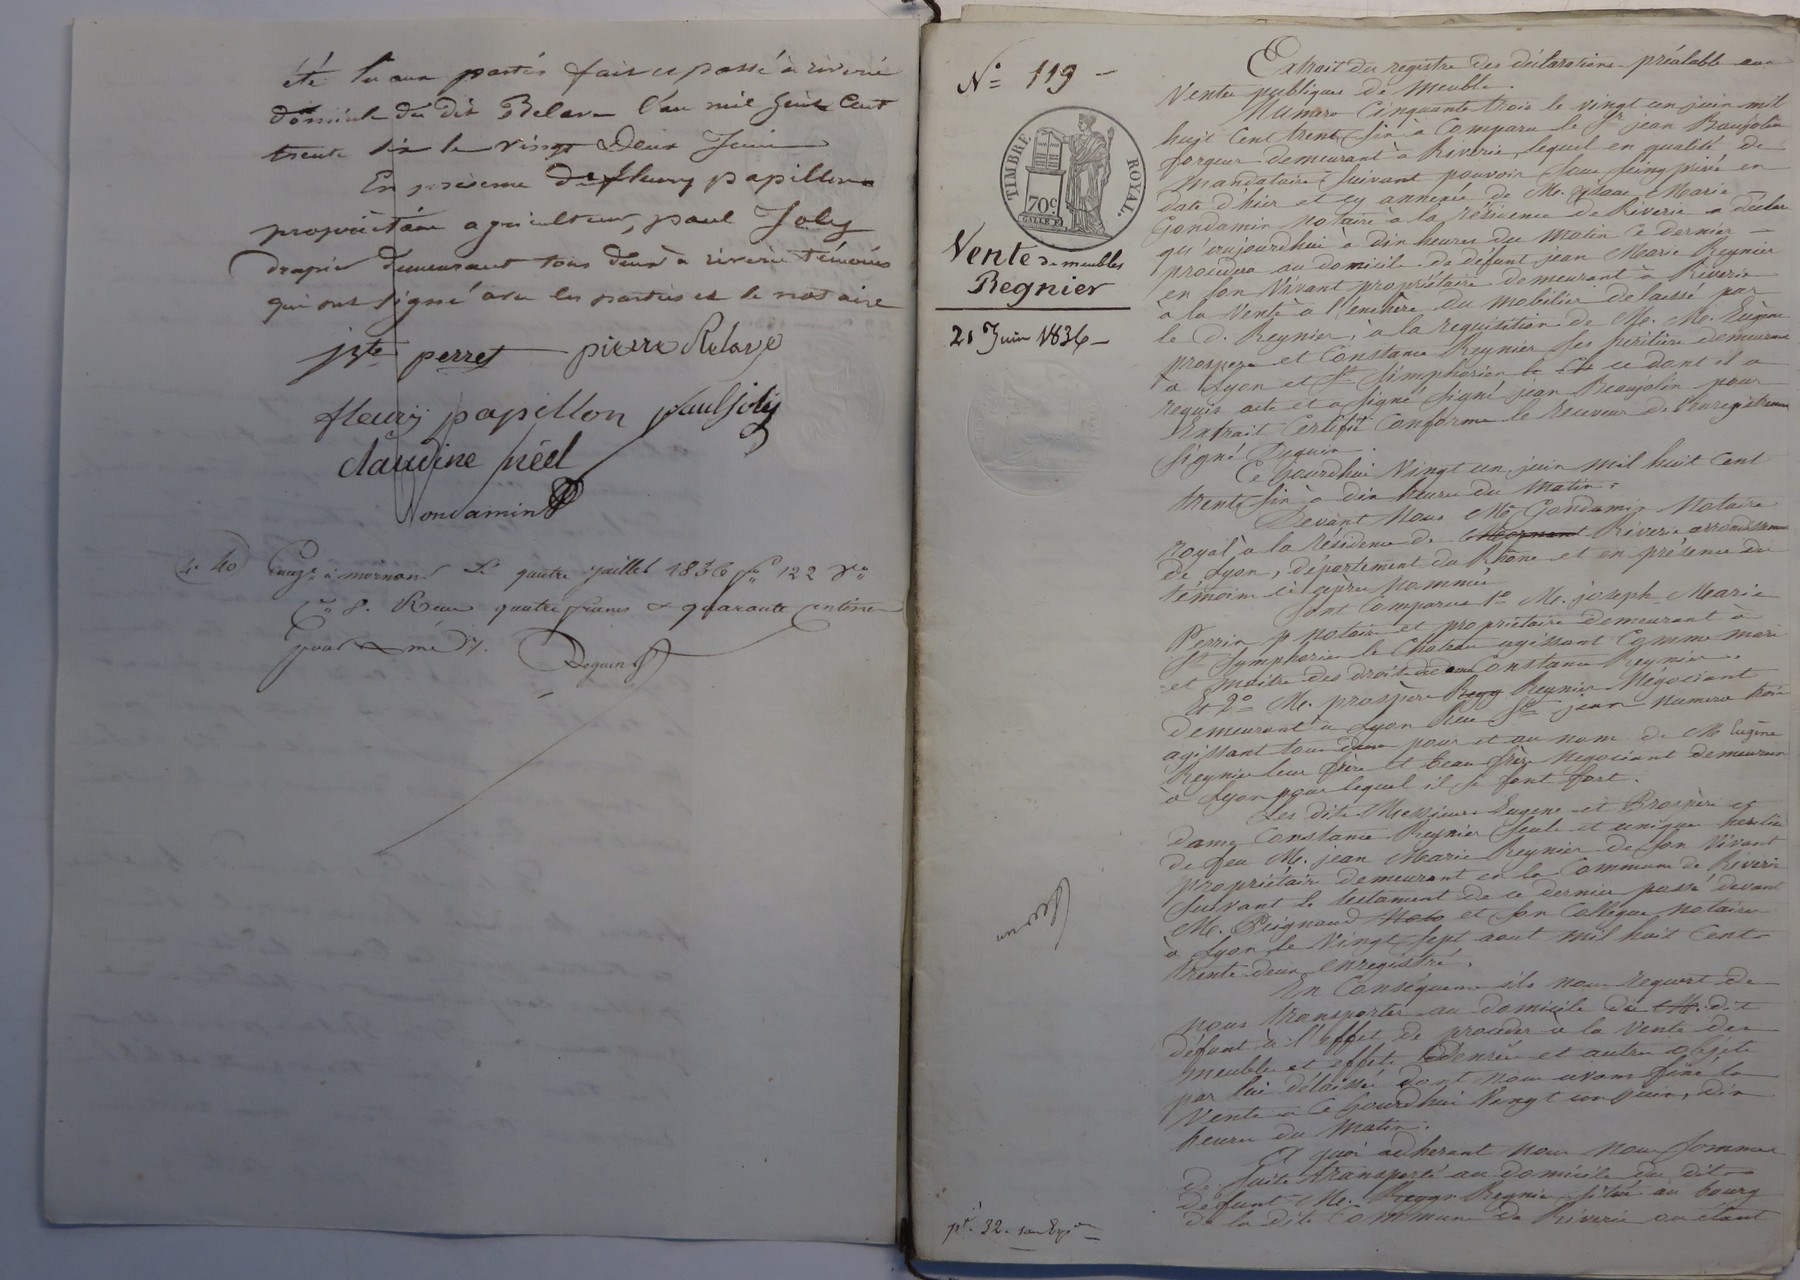 été lu aux parties fait et passé à riverie
domicile du dit Relave l'an mil huit cent
trente six le vingt Deux Juin
En présence de fleury papillon
propriétaire agriculteur, paul Joly
drapier demeurant tous deux à riverie témoins
qui ont signé avec les parties et le notaire
jste perret pierre Relave
fleury papillon paul joly
claudine néel
Gondamin
4. 40 Enreg. à mornant le quatre juillet 1836 fo 122 Ro
Co 8. Reçu quatre francs & quarante centimes
pour
Dequin
No 119
TIMBRE ROYAL.
70c
Vente de meubles
Regnier
21 Juin 1836
pt. 32
Extrait du registre des déclarations préalable aux
Ventes publiques de meubles.
Numéro Cinquante trois le vingt un juin mil
huit Cent trente six à Comparu le Sr jean Baujolin
forgeur demeurant à Riverie, lequel en qualité de
mandataire suivant pouvoir sous seing privé en
date d'hier et cy annexée de Me. Marie
Gondamin notaire à la résidence de Riverie a déclaré
qu'aujourd'hui à dix heures du matin ce dernier
procédera au domicile de défunt jean Marie Reynier
en son Vivant propriétaire demeurant à Riverie
à la Vente à l'enchère du mobilier délaissé par
le d. Reynier, à la requisition de M. M. Eugène
prospere et Constance Reynier ses héritiers demeurant
à Lyon et St Simphorien le Ch ce dont il a
requis acte et a Signé Signé jean Beaujolin pour
Extrait Certifié Conforme le Receveur de l'enregistrement
signé Dequin.
Ce jourdhui Vingt un juin mil huit Cent
trente six à dix heures du Matin,
Devant Nous Me Gondamin Notaire
royal à la résidence de Mornant Riverie arrondissement
de Lyon, département du Rhône et en présence des
témoins ci après nommés
Sont Comparus 1o M. joseph Marie
Perrin notaire et propriétaire demeurant à
St Symphorien le Chateau agissant Comme mari
et maitre des droits de dame Constance Reynier.
Et 2o M. prospère Regn Reynier Négociant
demeurant à Lyon Rue St jean numéro trois
agissant tous deux pour et au nom de M Eugène
Reynier leur frère et beau frère Négociant demeurant
à Lyon pour lequel il se font fort.
Les dits Messieurs Eugene et Prospère et
dame Constance Reynier seuls et uniques héritiers
de feu M. jean Marie Reynier de son Vivant
propriétaire demeurant en la Commune de Riverie
suivant le testament de ce dernier passé devant
Me. Peignaud Noto et son Collègue notaires
à Lyon le Vingt sept aout mil huit Cent
trente deux Enregistré.
En Conséquence ils nous requert de
nous transporter au domicile du M. dit
défunt à l'effet de procéder à la Vente des
meubles et effets Denrées et autres objets
par lui délaissé dont nous avons fixé la
Vente à Ce jourdhui Vingt un juin, dix
heures du Matin.
A quoi adherant nous nous sommes
de suite transporté au domicile du dit
défunt M. Reygn Regnier situé au bourg
de la dite Commune de Riverie où étant